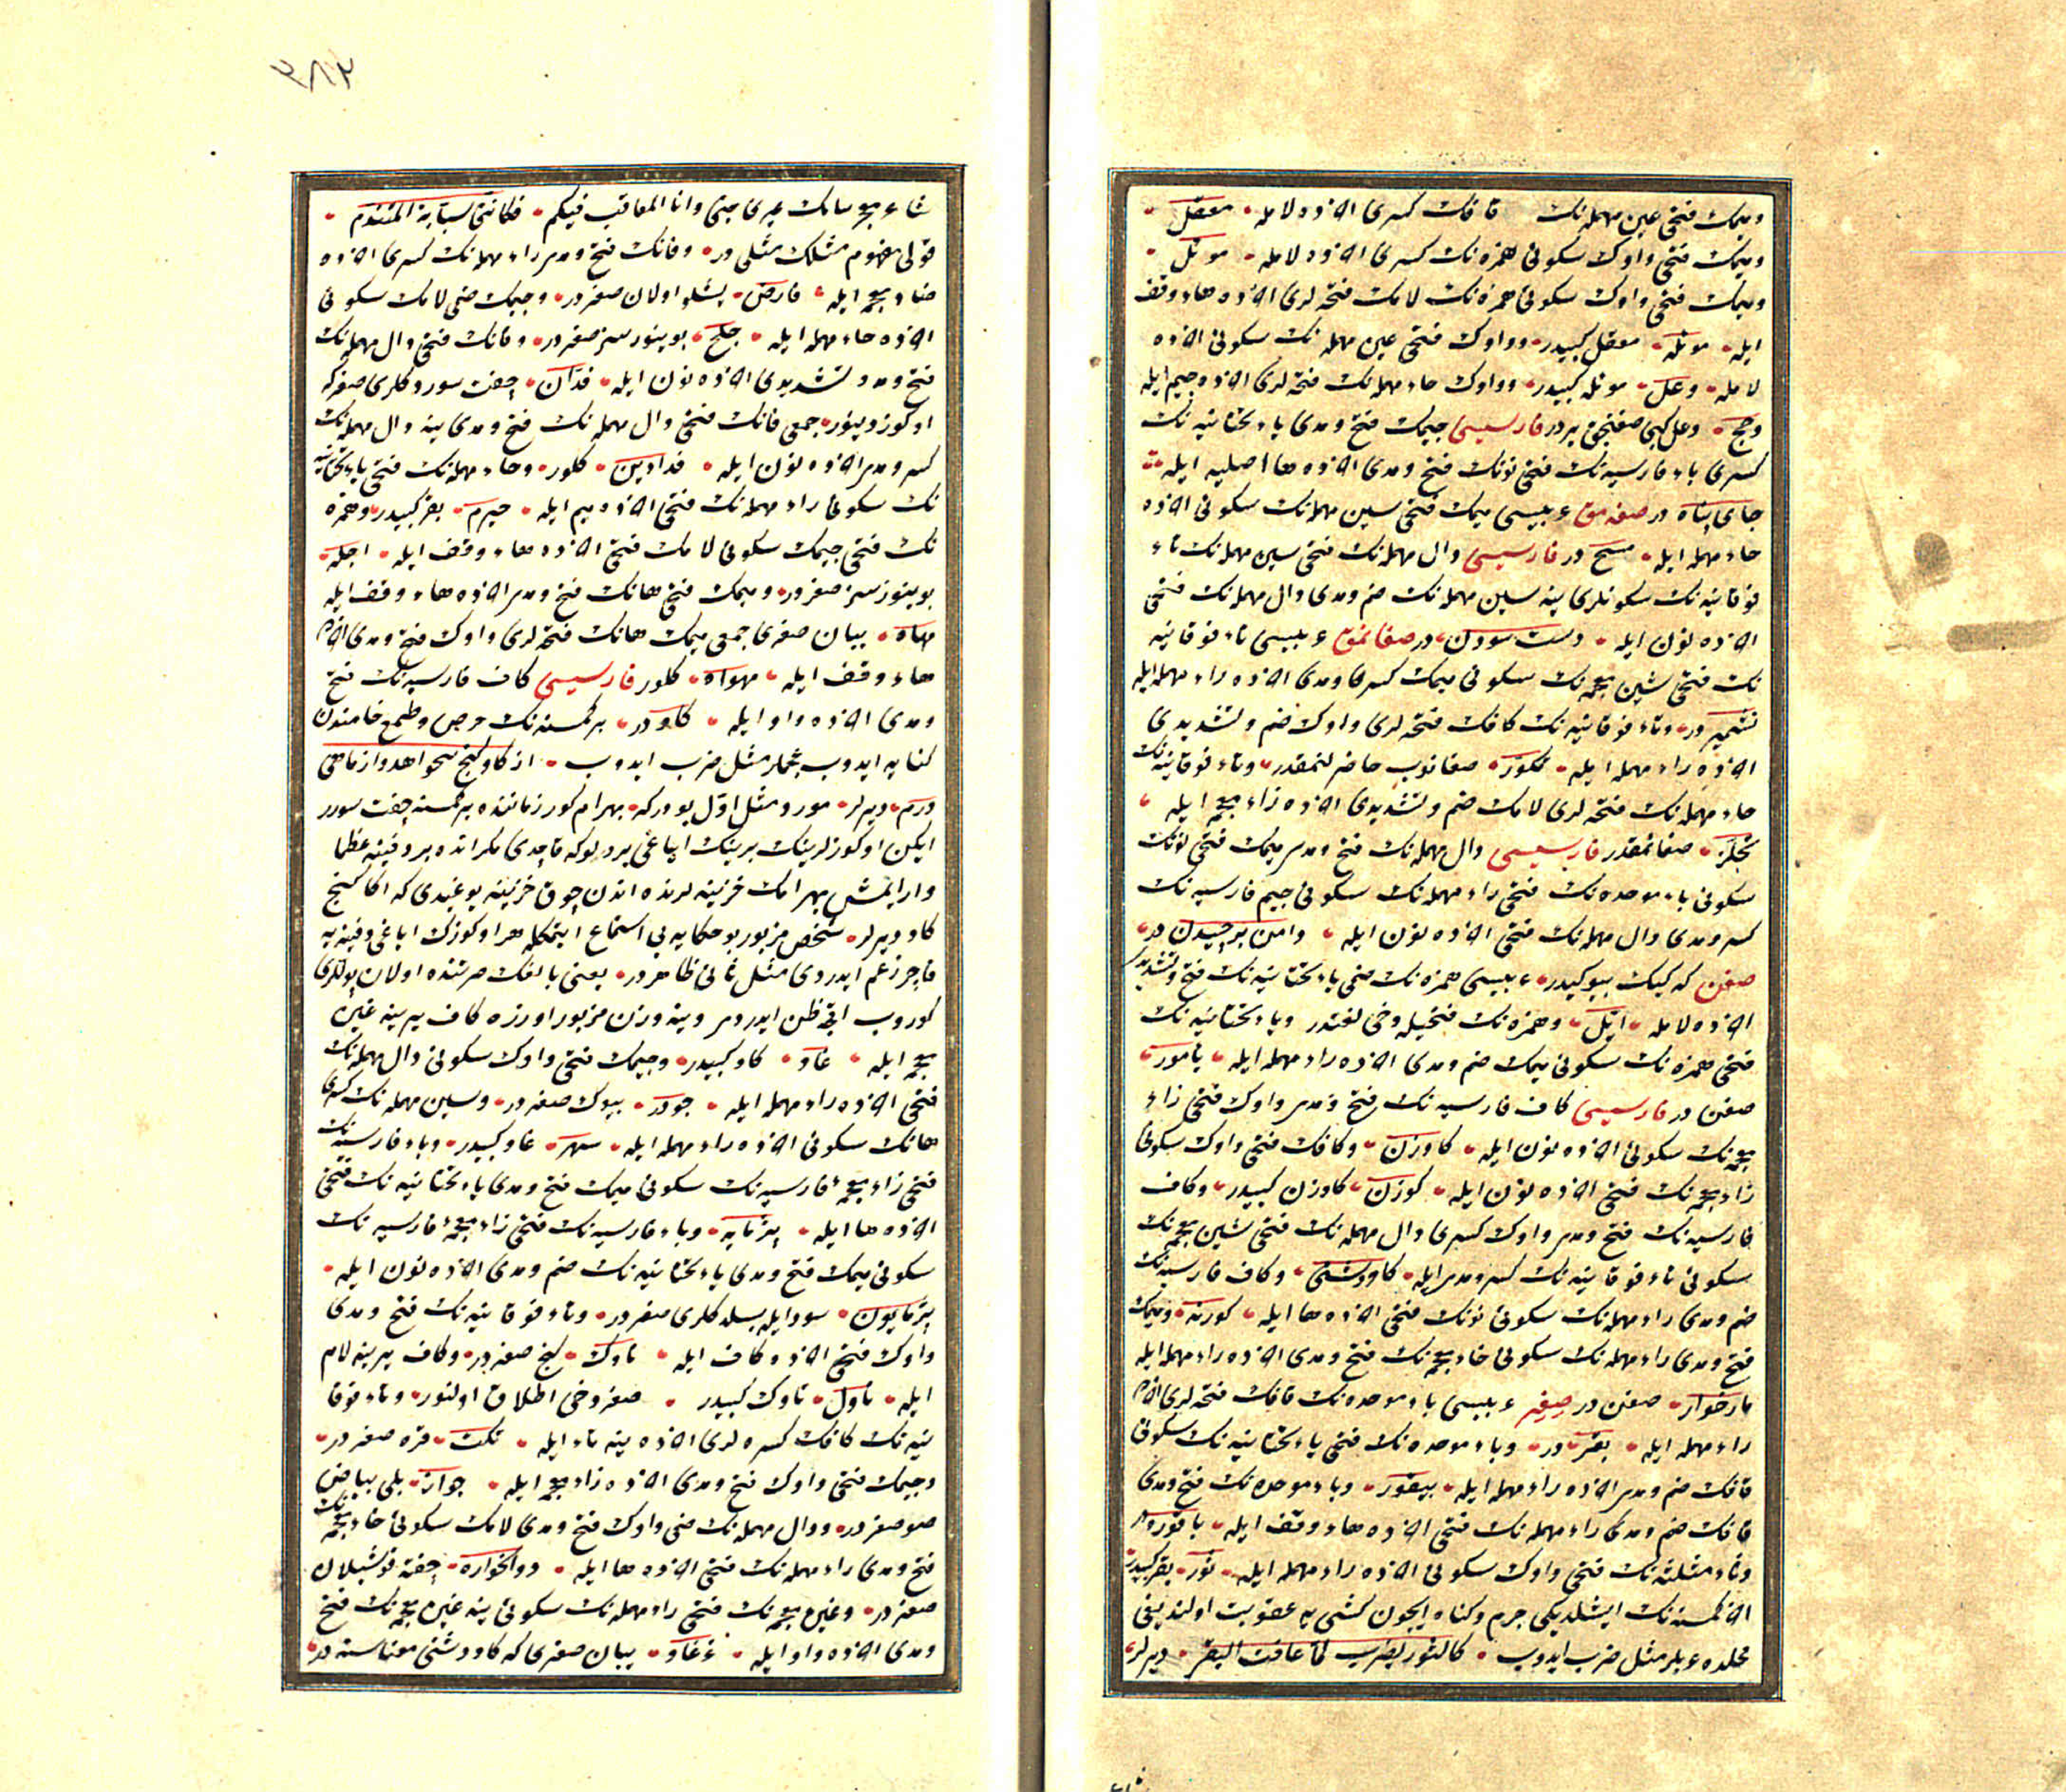 ومیمك فتحی عین مهمله‌نك قافك كسری اخرده لامله معقل
ومیمك فتحی واوك سكونی همزه‌نك كسری اخرده لامله موئل
ومیمك فتحی واوك سكونی همزه‌نك لامك فتحه‌لری اخرده هاء وقف
ایله موئله معقل كبیدر وواوك فتحی عین مهمله‌نك سكونی اخرده
لامله وعل موئله كبیدر وواوك حاء مهمله‌نك فتحه‌لری اخرده جیم ایله
وحج وعل كبی صغنجق یردر فارسیسی جیمك فتح ومدی یاء تحتانیه‌نك
كسری باء فارسیه‌نك فتحی نونك فتح ومدی اخرده هاء اصلیه ایله
جای پناه در صغه‌مق عربیسی میمك فتحی سین مهمله‌نك سكونی اخرده
حاء مهمله ایله مسح در فارسیسی دال مهمله‌نك فتحی سین مهمله‌نك تاء
فوقانیه‌نك سكونلری ینه سین مهمله‌نك ضم ومدی دال مهمله‌نك فتحی
اخرده نون ایله دست سودن در صغانمق عربیسی تاء فوقانیه
نك فتحی شین معجمه‌نك سكونی میمك كسری ومدی اخرده راء مهمله ایله
تشمیر در وتاء فوقانیه‌نك كافك فتحه‌لری واوك ضم وتشدیدی
اخرده راء مهمله ایله تكور صغانوب حاضرلنمقدر وتاء فوقانیه‌نك
حاء مهمله‌نك فتحه‌لری لامك ضم وتشدیدی اخرده زاء معجمه ایله
تحلز صغانمقدر فارسیسی دال مهمله‌نك فتح ومدی میمك فتحی نونك
سكونی باء موحده‌نك فتحی راء مهمله‌نك سكونی جیم فارسیه‌نك
كسر ومدی دال مهمله‌نك فتحی اخرده نون ایله دامن برچیدن در
صغن كه كیك بیوكیدر عربیسی همزه‌نك ضمی یاء تحتانیه‌نك فتح وتشدیدی
اخرده لامله ایل وهمزه‌نك فتحیله دخی لغتدر ویاء تحتانیه‌نك
فتحی همزه‌نك سكونی میمك ضم ومدی اخرده راء مهمله ایله یامور
صغن در فارسیسی كاف فارسیه‌نك فتح ومدی واوك فتحی زاء
معجمه‌نك سكونی اخرده نون ایله كاوزن وكافك فتحی واوك سكونی
زاء معجمه‌نك فتحی اخرده نون ایله كوزن كاوزن كبیدر وكاف
فارسیه‌نك فتح ومدی واوك كسری دال مهمله‌نك فتحی شین معجمه‌نك
سكونی تاء فوقانیه‌نك كسر ومدی ایله كاودشتی وكاف فارسیه‌نك
ضم ومدی راء مهمله‌نك سكونی نونك فتحی اخرده ها ایله كورنه ومیمك
فتح ومدی راء مهمله‌نك سكونی خاء معجمه‌نك فتح ومدی اخرده راء مهمله ایله
مارخوار صغن در صغر عربیسی باء موحده‌نك قافك فتحه‌لری اخرده
راء مهمله ایله بقر در وباء موحده‌نك فتحی یاء تحتانیه‌نك سكونی
قافك ضم ومدی اخرده راء مهمله ایله بیقور وباء موحده‌نك فتح ومدی
قافك ضم ومدی راء مهمله‌نك فتحی اخرده هاء وقف ایله باقوره
وثاء مثلثه‌نك فتحی واوك سكونی اخرده راء مهمله ایله ثور بقر كبیدر
اخر كمسنه‌نك ایشلدیكی جرم وكناه ایچون كشی یه عقوبت اولندیغی
محلده عربلر مثل ضرب ایدوب كالثور یضرب لما عافت البقر دیرلر
فكانتی سبابة المتندم
قولی مفهوم مثلك مثلی در وفانك فتح ومدی راء مهمله‌نك كسری اخرده
ضاد معجمه ایله فارض یشلو اولان صغردر وجیمك ضمی لامك سكونی
اخرده حاء مهمله ایله جلح بوینوزسز صغردر وفانك فتحی دال مهمله‌نك
فتح ومد وتشدیدی اخرده نون ایله فدان چفت سوردكلری صغركه
اوكوز دینور جمعی فانك فتحی دال مهمله‌نك فتح ومدی ینه دال مهمله‌نك
كسر ومدی اخرده نون ایله فدادین كلور وحاء مهمله‌نك فتحی یاء تحتانیه
نك سكونی راء مهمله‌نك فتحی اخرده میم ایله حیرم بقر كبیدر وهمزه
نك فتحی جیمك سكونی لامك فتحی اخرده هاء وقف ایله اجله
بوینوزسز صغردر ومیمك فتحی هانك فتح ومدی اخرده هاء وقف ایله
مهاه یبان صغری جمعی میمك هانك فتحه‌لری واوك فتح ومدی اخرده
هاء وقف ایله مهواه كلور فارسیسی كاف فارسیه‌نك فتح
ومدی اخرده واو ایله كاو در بر كمسنه‌نك حرص وطمع خامندن
كنایه ایدوب عجملر مثل ضرب ایدوب از كاو كنج میخواهد واز ماهی
درم دیرلر مورد مثل اول بودركه بهرام كور زماننده بر كمسنه چفت سورر
ایكن اوكوزلرینك برینك ایاغی بر دلوكه قاچدی مكر انده بر دفینه عظما
وار ایمش بهرامك خزینه لرنده اندن چوق خزینه بوغیدی كه اكا كنج
كاو دیرلر شخص مزبور بو حكایه یی استماع ایتمكله هر اوكوزك ایاغی دفینه یه
قاچر زعم ایدردی مثل ثانی ظاهردر یعنی بالغك صرتنده اولان پوللری
كوروب اقچه ظن ایدردی وینه وزن مزبور اوزره كاف یرینه غین
معجمه ایله غاو كاو كبیدر وجیمك فتحی واوك سكونی دال مهمله‌نك
فتحی اخرده راء مهمله ایله جودر بیوك صغردر وسین مهمله‌نك كسری
هانك سكونی اخرده راء مهمله ایله سهر غاو كبیدر وباء فارسیه‌نك
فتحی زاء معجمهٔ فارسیه‌نك سكونی میمك فتح ومدی یاء تحتانیه‌نك فتحی
اخرده ها ایله پژمایه وباء فارسیه‌نك فتحی زاء معجمهٔ فارسیه‌نك
سكونی میمك فتح ومدی یاء تحتانیه‌نك ضم ومدی اخرده نون ایله
پژمایون سود ایله بسلدكلری صغردر وتاء فوقانیه‌نك فتح ومدی
واوك فتحی اخرده كاف ایله تاوك كنج صغردر وكاف یرینه لام
ایله تاول تاوك كبیدر صغره دخی اطلاق اولنور وتاء فوقا
نیه‌نك كافك كسره‌لری اخرده ینه تاء ایله تكت قره صغردر
وجیمك فتحی واوك فتح ومدی اخرده زاء معجمه ایله جواز بلی بیاض
صو صغردر ودال مهمله‌نك ضمی واوك فتح ومدی لامك سكونی خاء معجمه‌نك
فتح ومدی راء مهمله‌نك فتحی اخرده ها ایله دوالخواره چفته قوشیلان
صغردر وغین معجمه‌نك فتحی راء مهمله‌نك سكونی ینه غین معجمه‌نك فتح
ومدی اخرده واو ایله غرغاو یبان صغری كه كاودشتی معناسنه‌در
۳۸۲